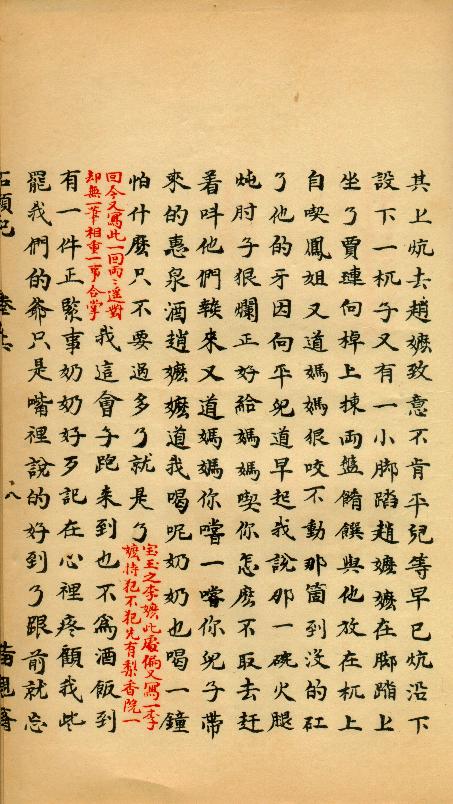 其上炕去趙嬷致意不肯平兒等早已炕沿下
設下一杌子又有一小脚踏趙嬷嬷在脚踏上
坐了賈璉向棹上揀兩盤餚饌與他放在杌上
自喫鳳姐又道媽媽狠咬不動那箇到沒的矼
了他的牙因向平兒道早起我說那一碗火腿
炖肘子狠爛正好給媽媽喫你怎麽不取去赶
着呌他們𤍠來又道媽媽你嚐一嚐你兒子帶
來的惠泉酒趙嬷嬷道我喝呢奶奶也喝一鐘
怕什麽只不要過多了就是了
宝玉之李嬷此處偏又寫一李
嬷特犯不犯先有梨香院一
回今又寫此一回兩〻遥對
却無一筆相重一事合掌
我這會子跑來到也不為酒飯到
有一件正緊事奶奶好歹記在心裡疼顧我些
罷我們的爺只是嘴裡說的好到了跟前就忘
石頭記
八